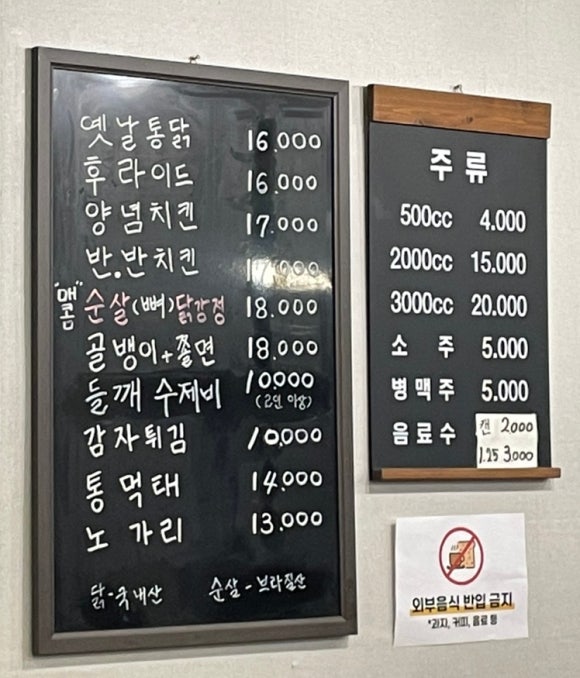 옛날통닭 16.000
후라이드 16.000
양념치킨 17.000
반.반치킨 17.000
"매콤" 순살(뼈)닭강정 18.000
골뱅이+쫄면 18.000
들깨 수제비 10.000
(2인 이상)
감자튀김 10,000
통먹태 14.000
노가리 13.000
닭-국내산 순살-브라질산
주류
500cc 4.000
2000cc 15.000
3000cc 20.000
소주 5.000
병맥주 5.000
음료수 캔 2000
1.25 3.000
외부음식 반입 금지
*과자, 커피, 음료 등